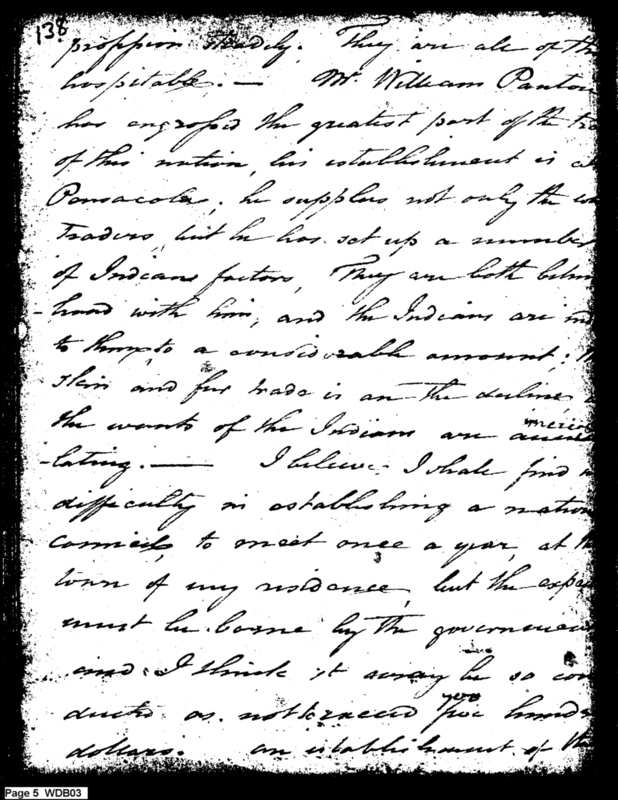 138
progression steadily. They are all of th
hospitable. — Mr. William Panton
has engrossed the greatest part of the tra
of this nation, his establishment is at
Pensacola, he supplies not only the
Traders, but he has set up a number
of Indians factors, They are both behin
-hand with him, and the Indians are ind
to them, to a considerable amount;
skin and fur trade is on the decline,
the wants of the Indians are
-lating. — I believe I shall find n
difficulty in establishing a nation
council, to meet once a year, at th
town of my residence, but the expen
must be borne by the governmen
and I think it may be so con
ducted as not to exceed five hundr
dollars. an establishment of th
Page 5 WDB03